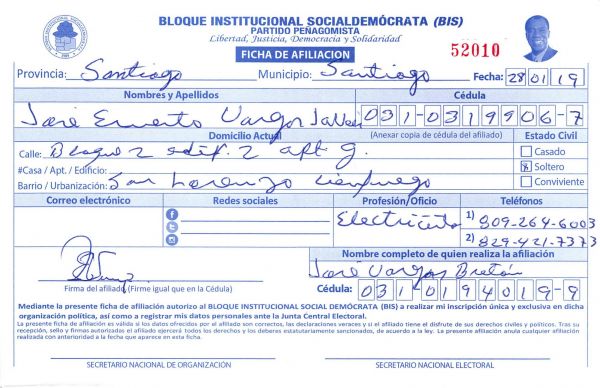 BLOQUE INSTITUCIONAL SOCIALDEMÓCRATA (BIS)
PARTIDO PEÑAGOMISTA
Libertad, Justicia, Democracia y Solidaridad
FICHA DE AFILIACION
52010
Provincia: Santiago Municipio: Santiago Fecha: 28 01 19
Nombres y Apellidos Cédula
José Ernesto Vargas 031-0319906-7
Domicilio Actual (Anexar copia de cédula del afiliado) Estado Civil
Calle: Bloque 2 edif. 2 apt g. Casado
#Casa / Apt. / Edificio: Soltero
Barrio / Urbanización: San Lorenzo Conviviente
Correo electrónico Redes sociales Profesión/Oficio Teléfonos
Electricista 1) 809-264-6003
2) 829-421-7373
Nombre completo de quien realiza la afiliación
José Vargas Bretón
Firma del afiliado (Firme igual que en la Cédula) Cédula: 031-0194019-9
Mediante la presente ficha de afiliación autorizo al BLOQUE INSTITUCIONAL SOCIAL DEMÓCRATA (BIS) a realizar mi inscripción única y exclusiva en dicha
organización política, así como a registrar mis datos personales ante la Junta Central Electoral.
La presente ficha de afiliación es válida si los datos ofrecidos por el afiliado son correctos, las declaraciones veraces y si el afiliado tiene el disfrute de sus derechos civiles y políticos. Tras su
recepción, sello y firmas autorizadas el afiliado ejercerá todos los derechos y los deberes estatutariamente sancionados, de acuerdo a la ley. La presente afiliación anula cualquier afiliación
realizada con anterioridad a la fecha que aparece en esta ficha.
SECRETARIO NACIONAL DE ORGANIZACIÓN SECRETARIO NACIONAL ELECTORAL